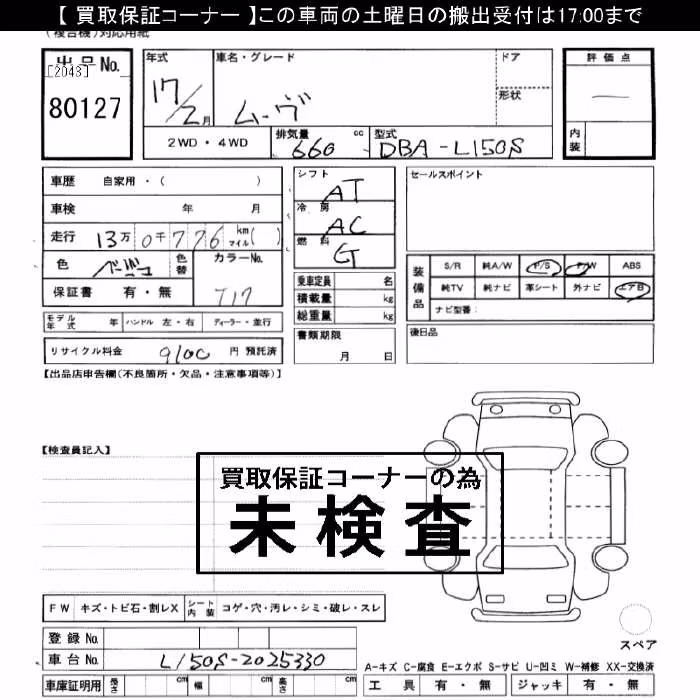 【 買取保証コーナー 】この車両の土曜日の搬出受付は17:00まで
(複合機)対応用紙
出品No.
[2043]
80127
年式
17/2月
車名・グレード
ムーヴ
ドア
形状
2WD・4WD
排気量
660 cc
型式
DBA-L150S
評価点
—
内装
車歴 自家用・( )
車検 年 月
走行 13万0千776 km マイル( )
色 ベージュ
色替
カラーNo.
T17
保証書 有・無
モデル年式 年 ハンドル 左・右 ディーラー・並行
リサイクル料金 9100 円 預託済
シフト
AT
冷房
AC
燃料
G
乗車定員 名
積載量 kg
総重量 kg
書類期限
月 日
セールスポイント
装備品
S/R 純A/W P/S P/W ABS
純TV 純ナビ 革シート 外ナビ エアB
ナビ型番:
後日品
【出品店申告欄(不良箇所・欠品・注意事項等)】
【検査員記入】
買取保証コーナーの為
未検査
FW キズ・トビ石・割レX シート内装 コゲ・穴・汚レ・シミ・破レ・スレ
登録No.
車台No. L150S-2025330
車庫証明用 長さ cm 幅 cm 高さ cm
スペア
A-キズ C-腐食 E-エクボ S-サビ U-凹ミ W-補修 XX-交換済
工具 有・無 ジャッキ 有・無